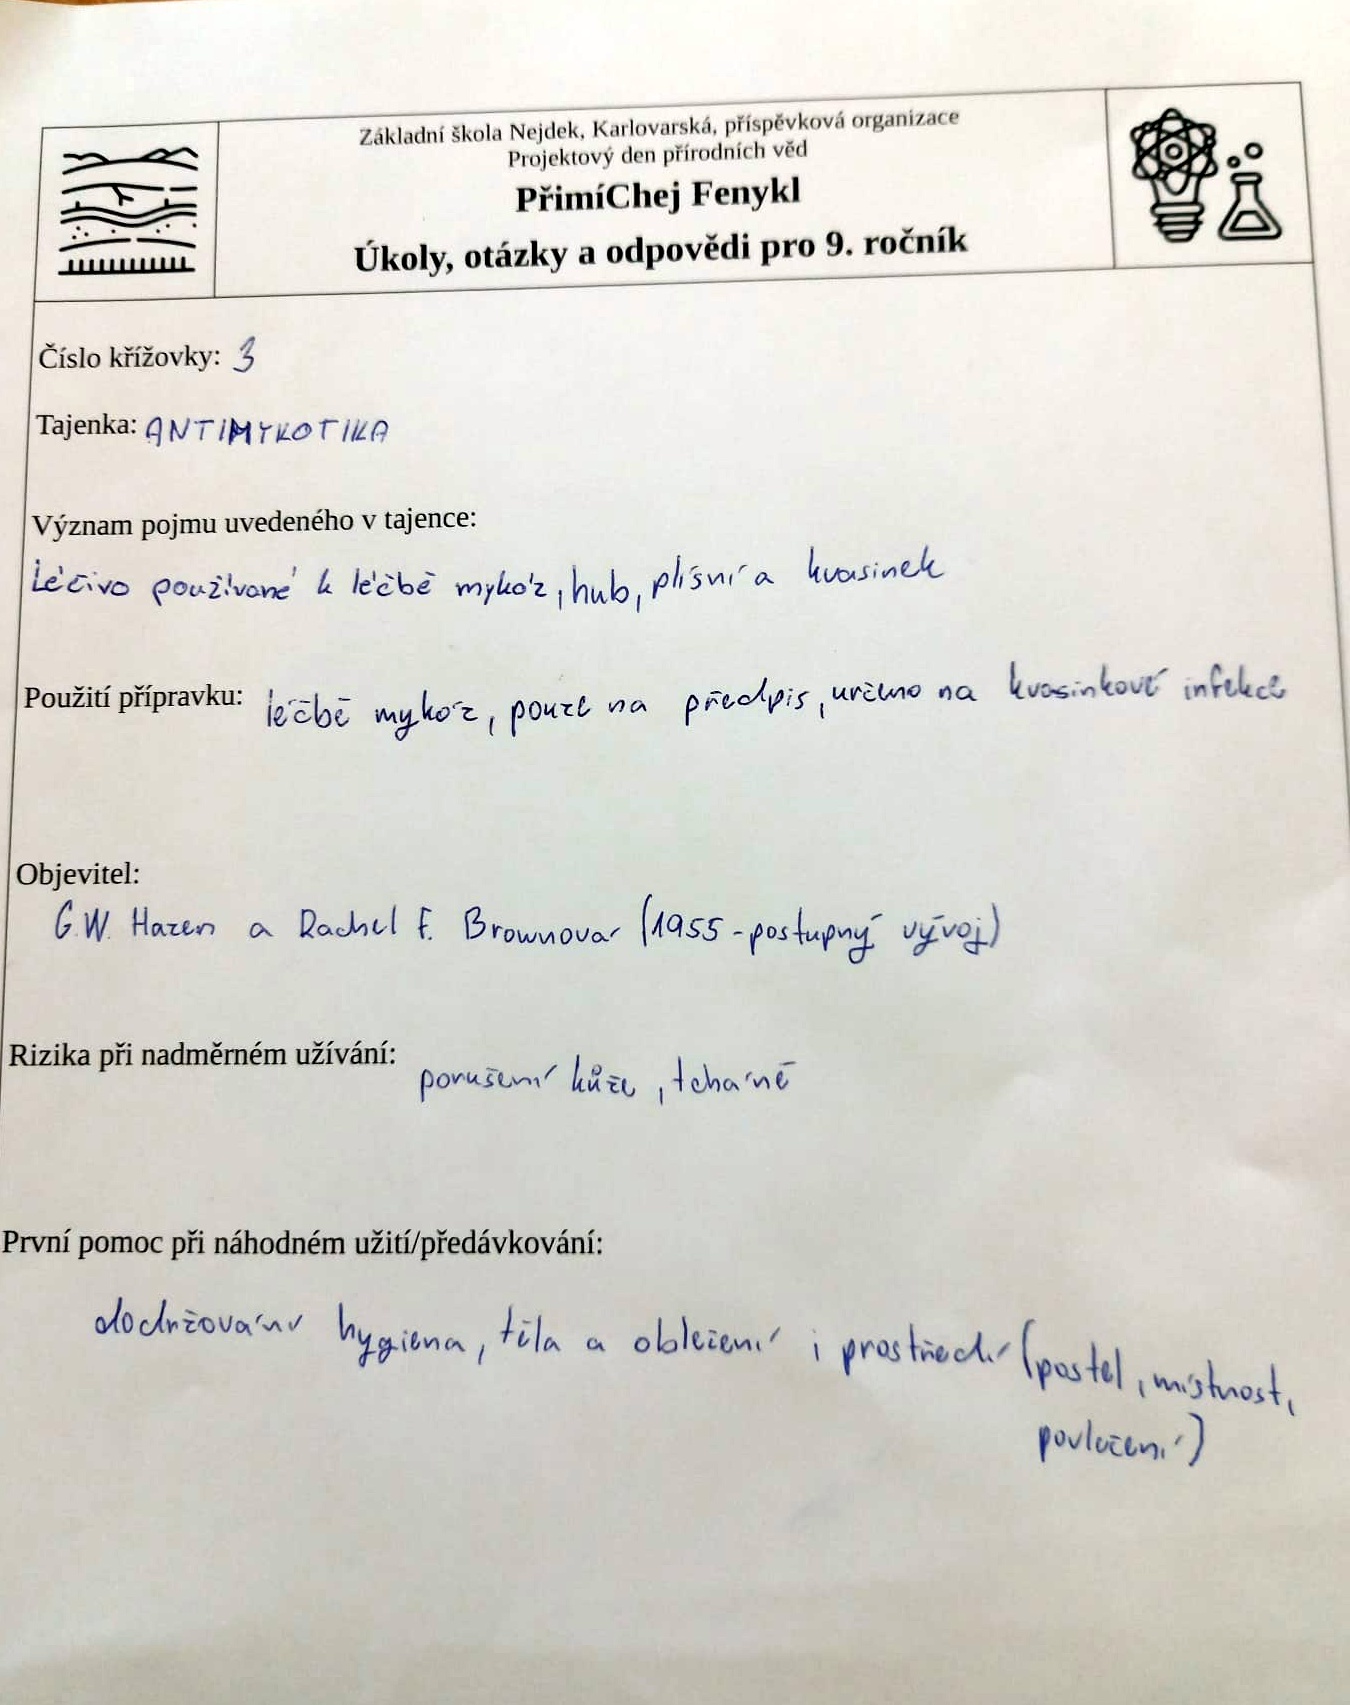 Základní škola Nejdek, Karlovarská, příspěvková organizace
Projektový den přírodních věd
PřimíChej Fenykl
Úkoly, otázky a odpovědi pro 9. ročník
Číslo křížovky: 3
Tajenka: ANTIMYKOTIKA
Význam pojmu uvedeného v tajence:
Léčivo používané k léčbě mykóz, hub, plísní a kvasinek
Použití přípravku: léčbě mykóz, pouze na předpis, určeno na kvasinkové infekce
Objevitel:
G.W. Hazen a Rachel F. Brownová (1955 - postupný vývoj)
Rizika při nadměrném užívání: porušení kůže, tcháně
První pomoc při náhodném užití/předávkování:
dodržování hygiena, těla a oblečení i prostředí (postel, místnost,
povlečení)